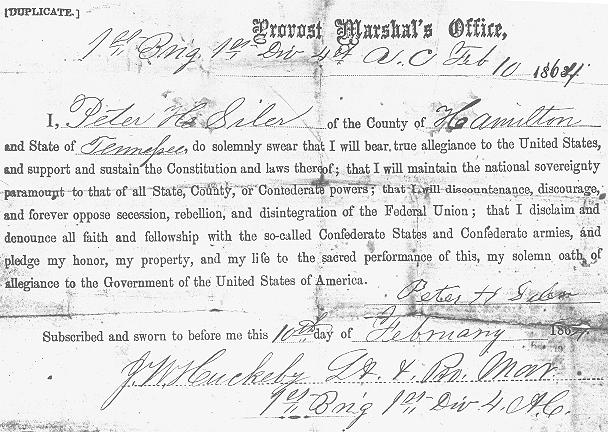 [DUPLICATE.]
Provost Marshal's Office,
1st Brig. 1st Div 4th A. C Feb 10 1864
I, Peter H. Siler of the County of Hamilton
and State of Tennessee, do solemnly swear that I will bear true allegiance to the United States,
and support and sustain the Constitution and laws thereof; that I will maintain the national sovereignty
paramount to that of all State, County, or Confederate powers; that I will discountenance, discourage,
and forever oppose secession, rebellion, and disintegration of the Federal Union; that I disclaim and
denounce all faith and fellowship with the so-called Confederate States and Confederate armies, and
pledge my honor, my property, and my life to the sacred performance of this, my solemn oath of
allegiance to the Government of the United States of America.
Peter H Siler
Subscribed and sworn to before me this 10th day of February 1864
J. W. Huckeby Lt. & Pro. Mar.
1st Brig 1st Div 4. A. C.